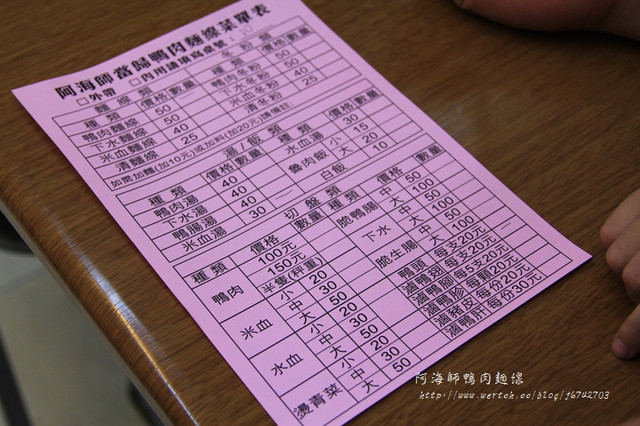 阿海師當歸鴨肉麵線菜單表
□外帶 □內用請填寫桌號：10
麵線類 冬粉類
種類 價格 數量 種類 價格 數量
鴨肉麵線 50 鴨肉冬粉 50
下水麵線 50 下水冬粉 50
米血麵線 40 米血冬粉 40
清麵線 25 清冬粉 25
如需加麵(加10元)或加料(加20元)請備註
湯/飯類
種類 價格 數量 種類 價格 數量
鴨肉湯 40 水血湯 30
下水湯 40 魯肉飯 小 15
鴨腸湯 40 大 20
米血湯 30 白飯 10
切盤類
種類 價格 數量 種類 價格 數量
鴨肉 100元 脆鴨腸 中 50
150元 大 100
半隻(秤重) 下水 中 50
米血 小 20 大 100
中 30 脆生腸 中 50
大 50 大 100
水血 小 20 鴨頭 每支20元
中 30 滷鴨翅 每支20元
大 50 滷鴨腳 每5支20元
燙青菜 中 30 滷鴨胗 每顆20元
大 50 滷豬皮 每份20元
滷鴨肝 每份30元
阿海師鴨肉麵線
http://www.wretch.cc/blog/j6742703